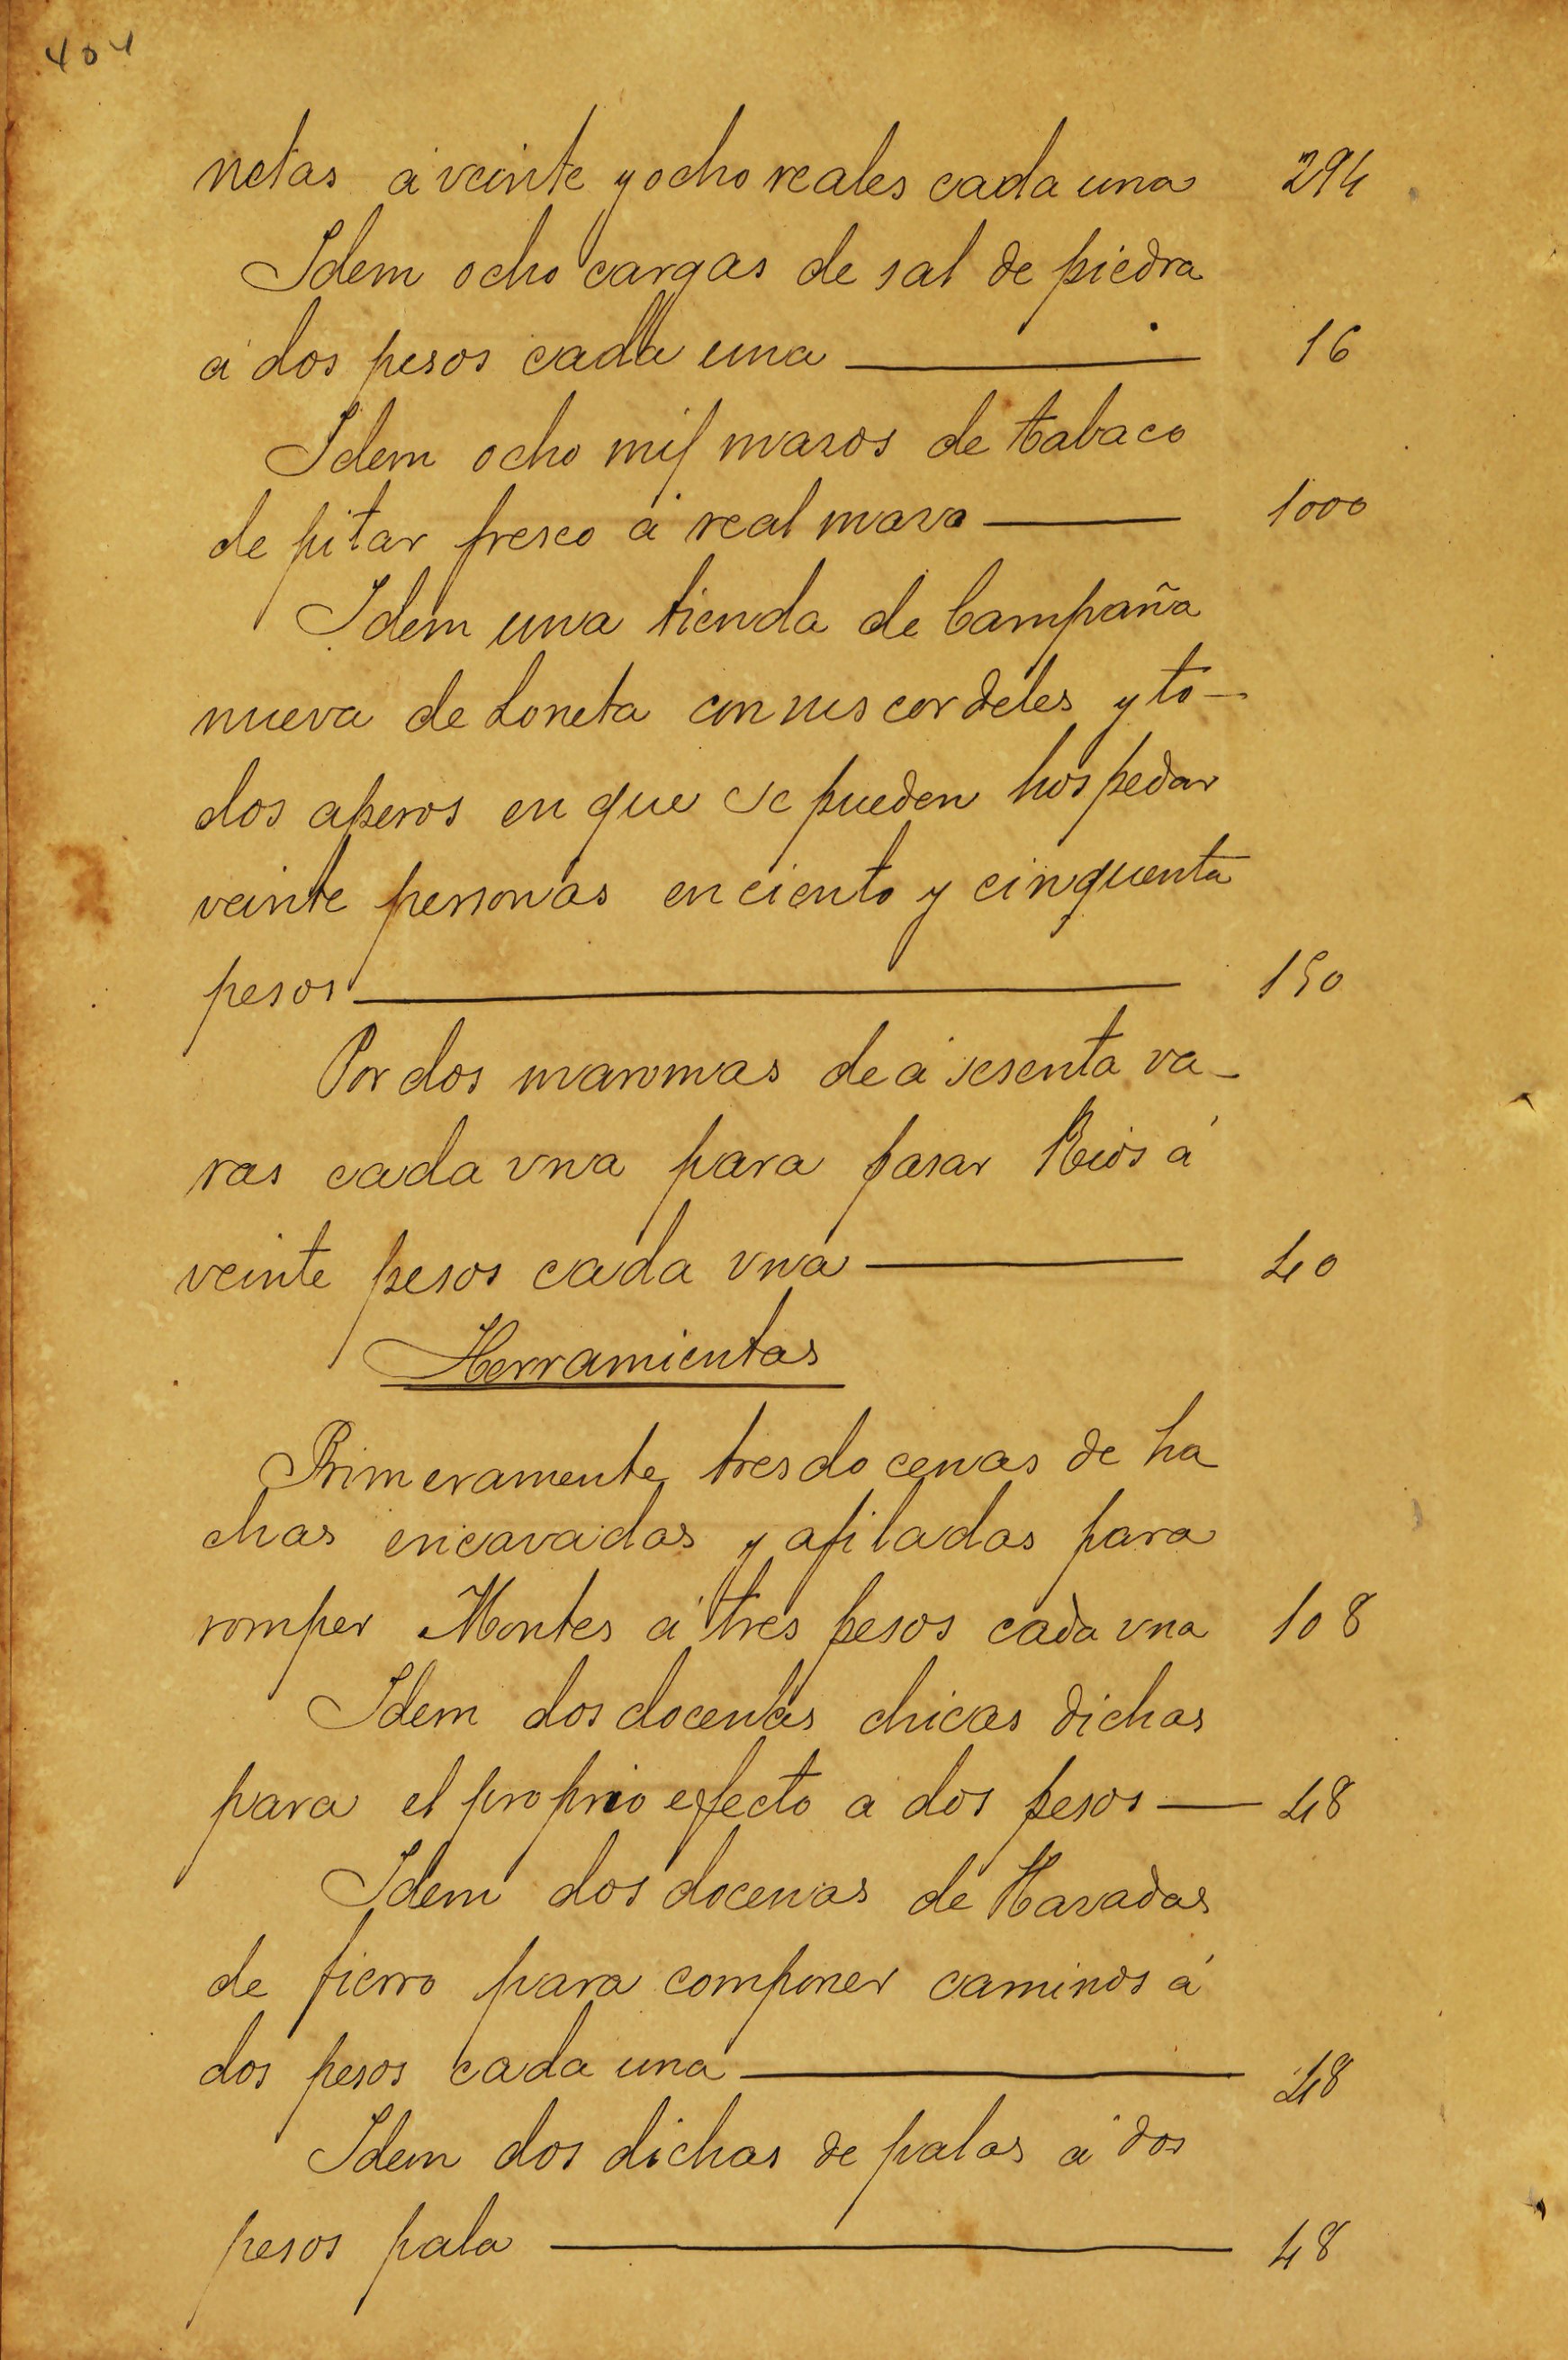 404
netas á veinte y ocho reales cada una 294
Idem ocho cargas de sal de piedra
á dos pesos cada una — 16
Idem ocho mil mazos de tabaco
de pitar fresco á real mazo — 1000
Idem una tienda de Campaña
nueva de Loneta con sus cordeles y to-
dos aperos en que se pueden hospedar
veinte personas en ciento y cinquenta
pesos — 150
Por dos maromas de á sesenta va-
ras cada vna para pasar Rios á
veinte pesos cada vna — 40
Herramientas
Primeramente tres docenas de ha
chas encavadas y afiladas para
romper Montes á tres pesos cada vna 108
Idem dos docenas chicas dichas
para el proprio efecto a dos pesos — 48
Idem dos docenas de Hazadas
de fierro para componer caminos á
dos pesos cada una — 48
Idem dos dichas de palas a dos
pesos pala — 48